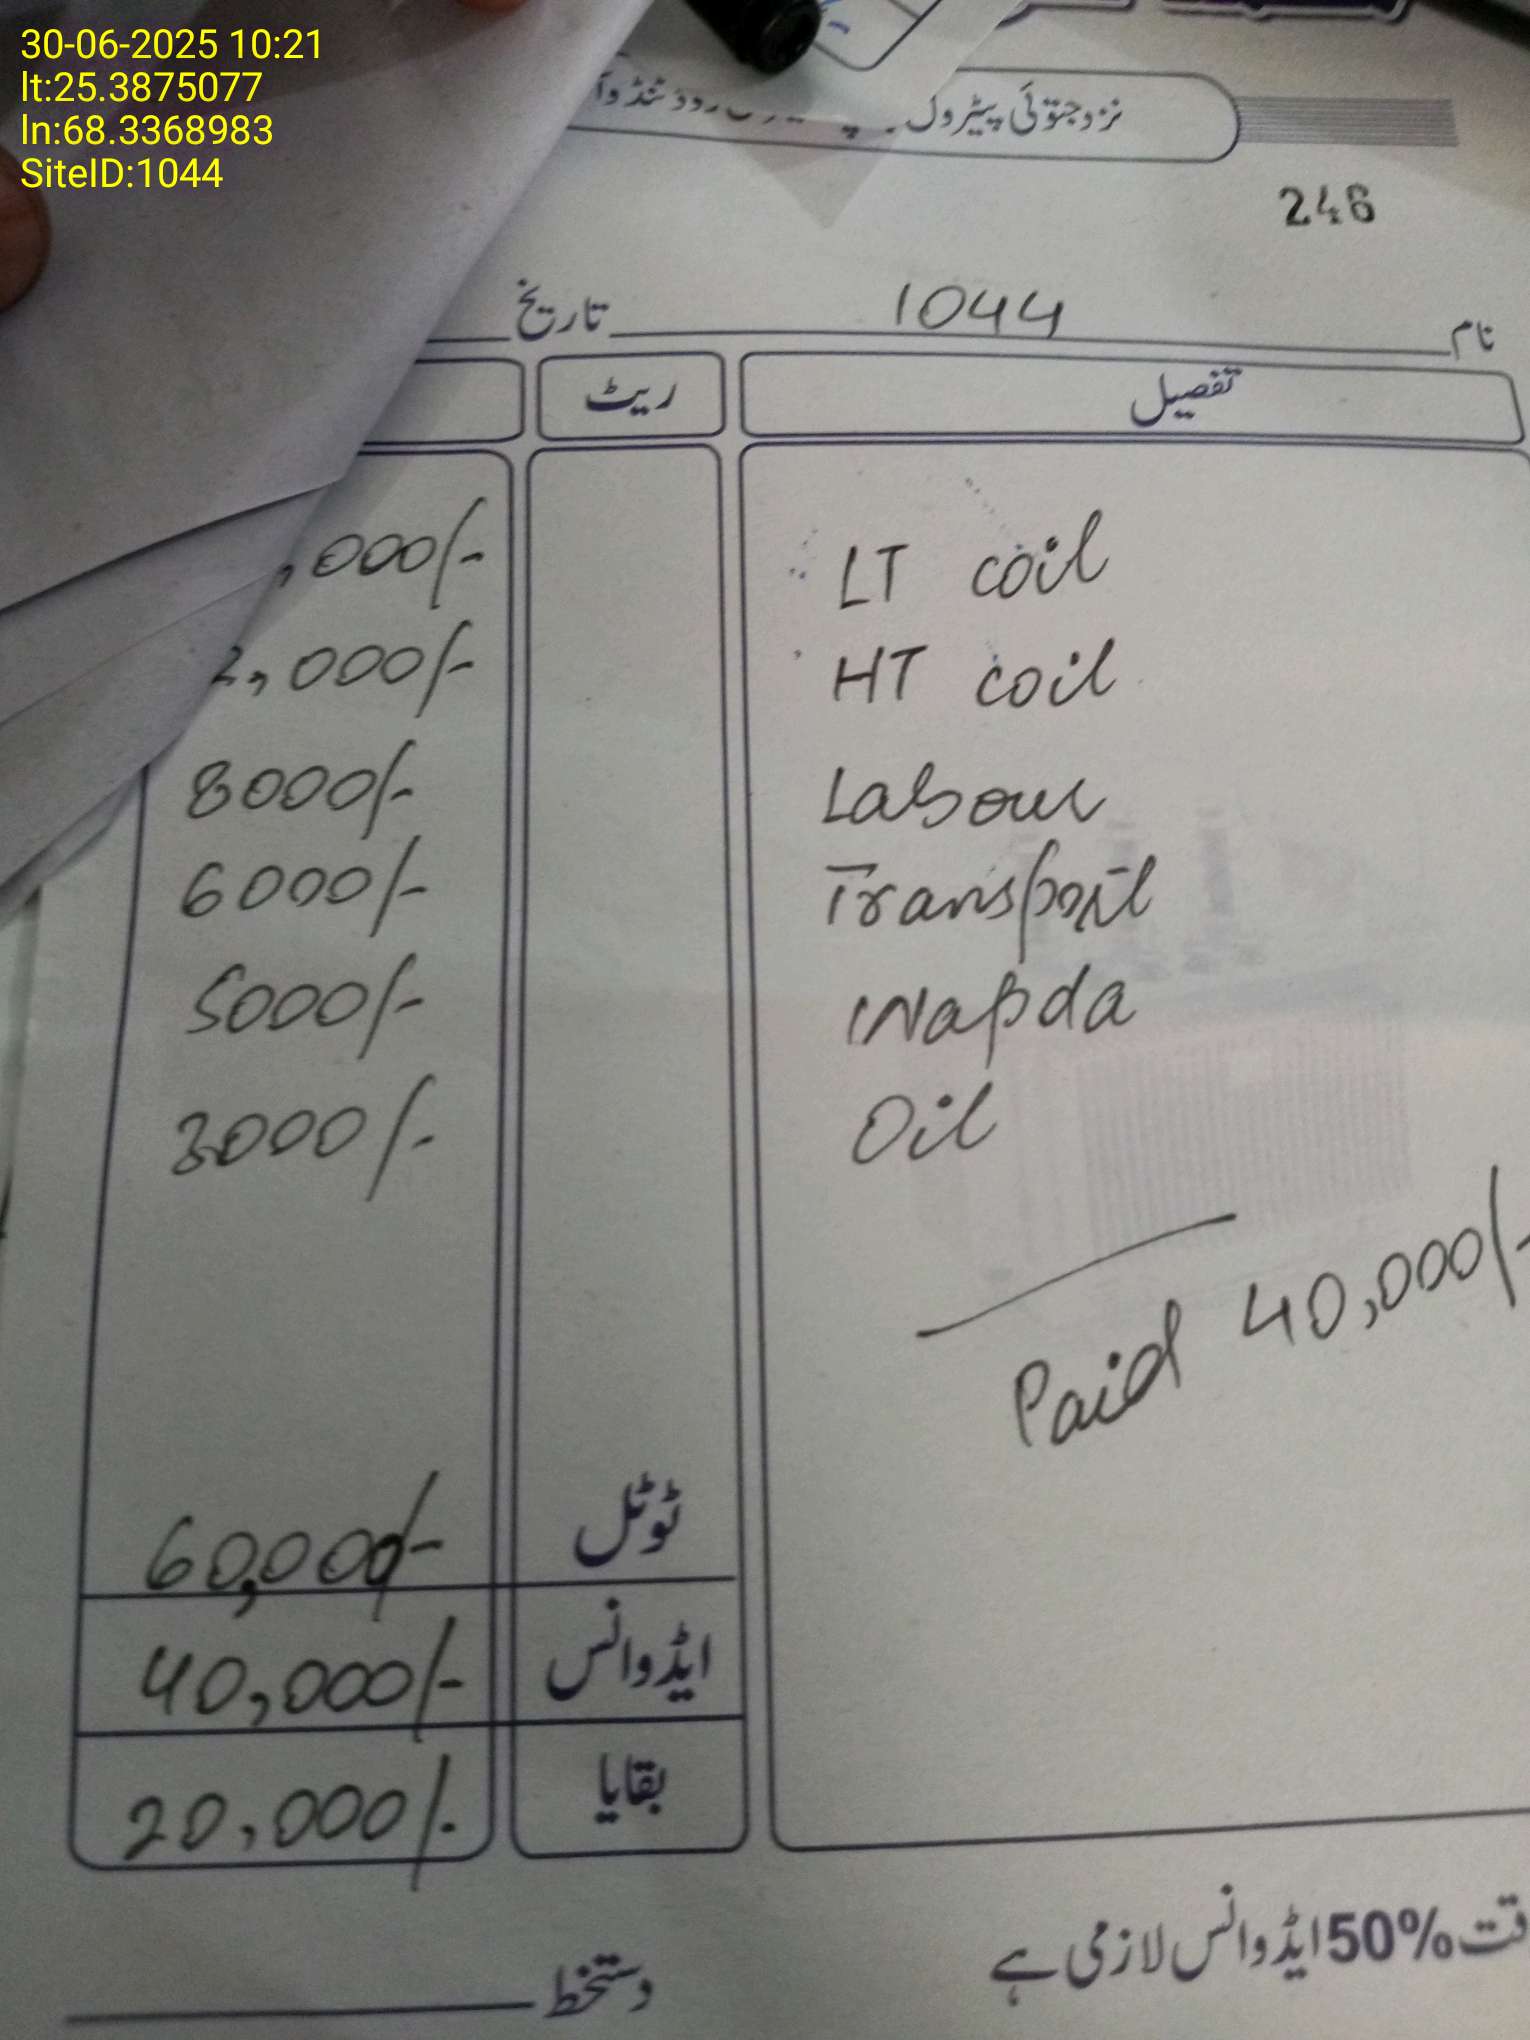 30-06-2025 10:21
lt:25.3875077
ln:68.3368983
SiteID:1044
نزد جتوئی پیٹرول
246
نام 1044 تاریخ
تفصیل ریٹ
LT coil ,000/-
HT coil 2,000/-
Labour 8000/-
Transport 6000/-
Wapda 5000/-
Oil 3000/-
Paid 40,000/-
ٹوٹل 60,000/-
ایڈوانس 40,000/-
بقایا 20,000/-
50% ایڈوانس لازمی ہے
دستخط